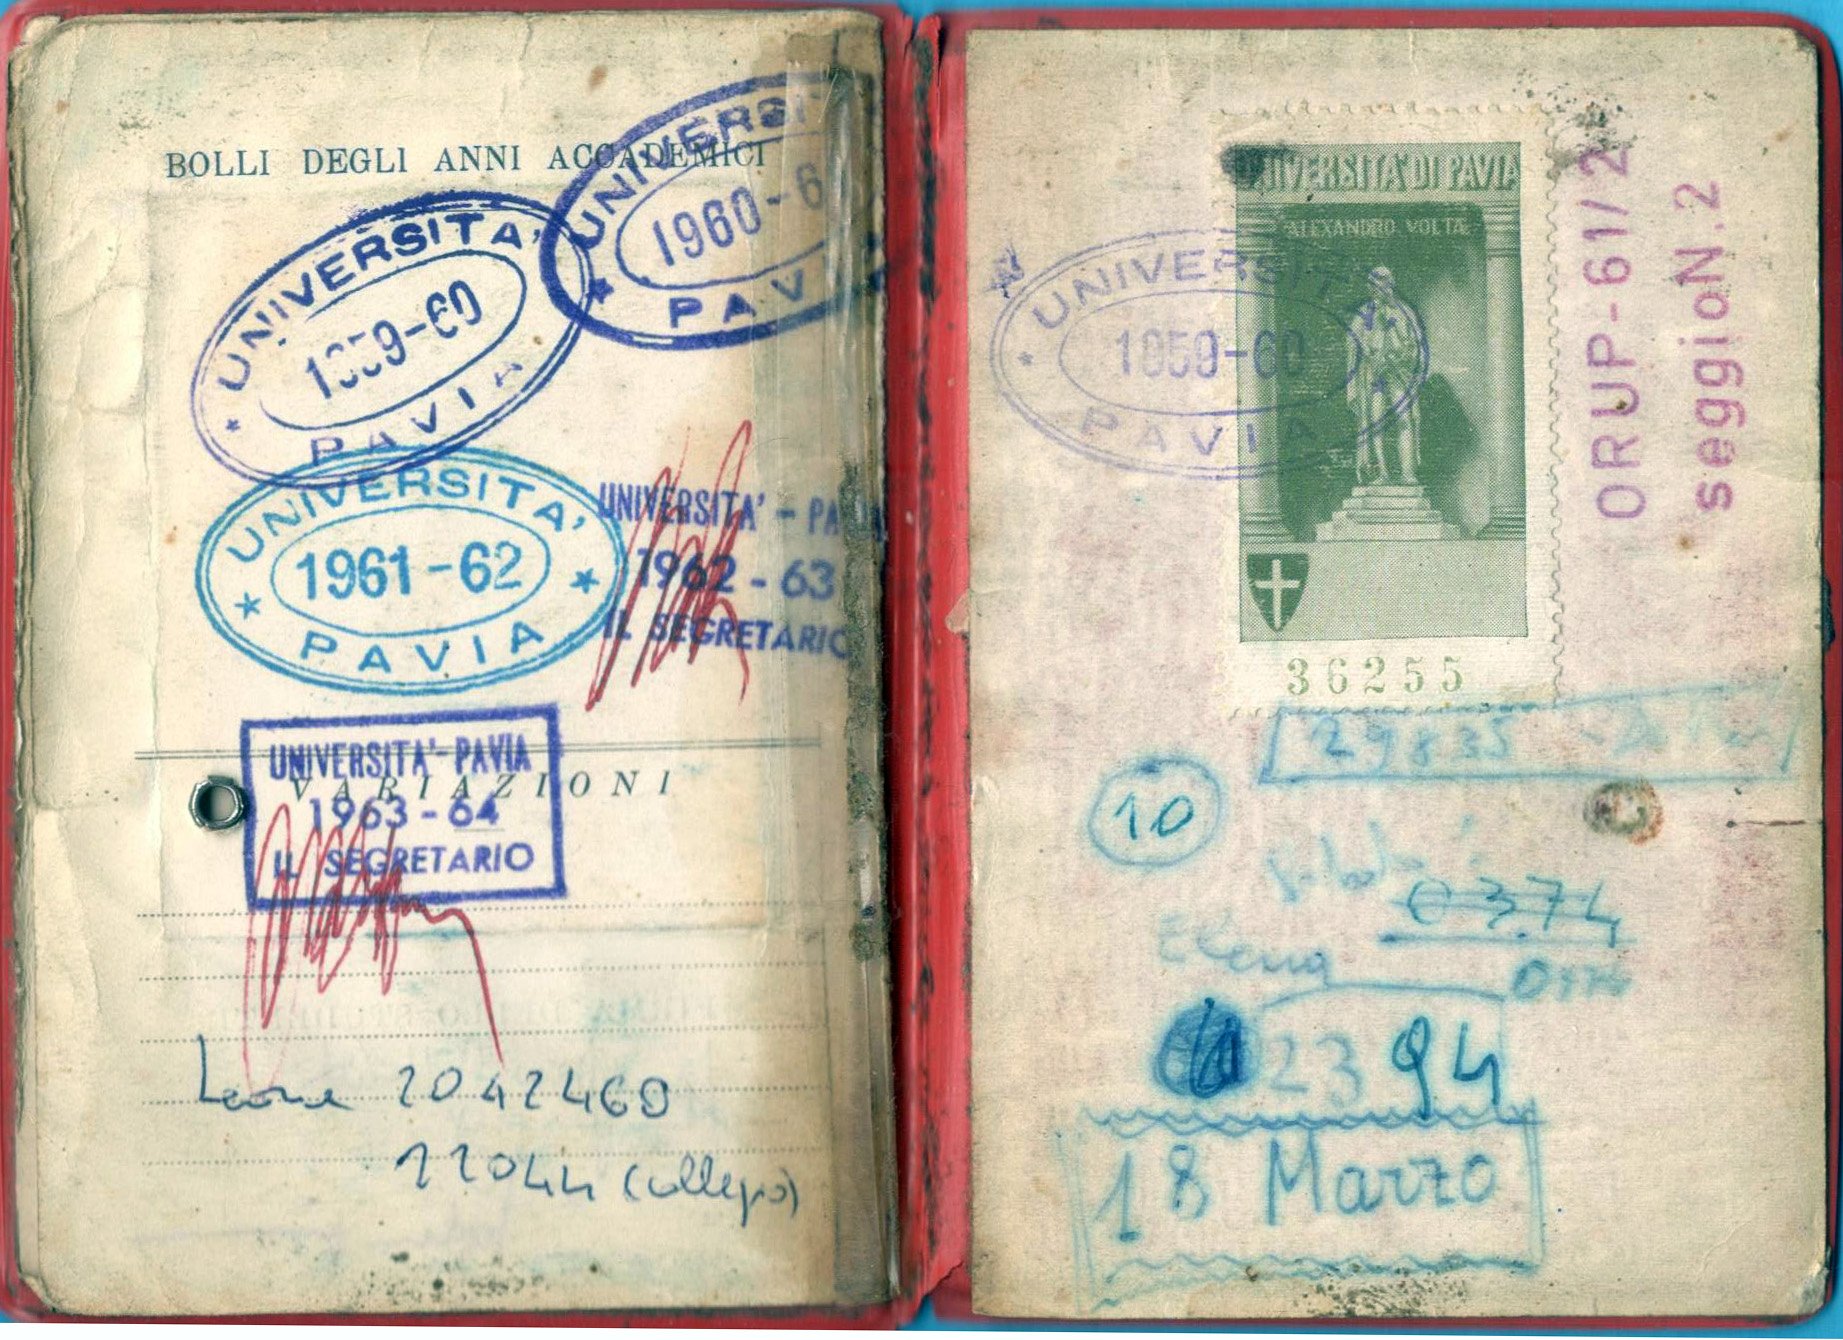 BOLLI DEGLI ANNI ACCADEMICI
UNIVERSITA'
1959-60
PAVIA
UNIVERSI
1960-6
PAV
UNIVERSITA'
1961-62
PAVIA
UNIVERSITA' - PAVIA
1962-63
IL SEGRETARIO
VARIAZIONI
UNIVERSITA'-PAVIA
1963-64
IL SEGRETARIO
Leone 2042460
22044 (collegio)
UNIVERSITA' DI PAVIA
ALEXANDRO VOLTA
36255
UNIVERSITA'
1959-60
PAVIA
ORUP-61/2
seggioN.2
29835
10
0374
Elena
2394
18 Marzo